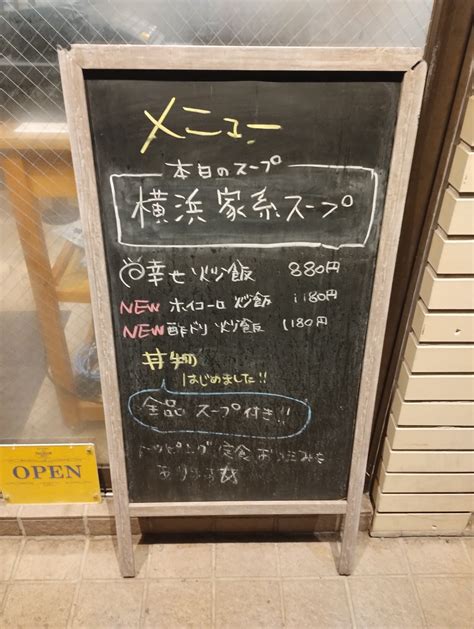 メニュー
本日のスープ
横浜家系スープ
幸せ炒飯 880円
NEW ホイコーロ炒飯 1180円
NEW 酢ドリ炒飯 1180円
丼物
はじめました!!
全品 スープ付き!!
トッピング 定食 お込みも
あります
OPEN